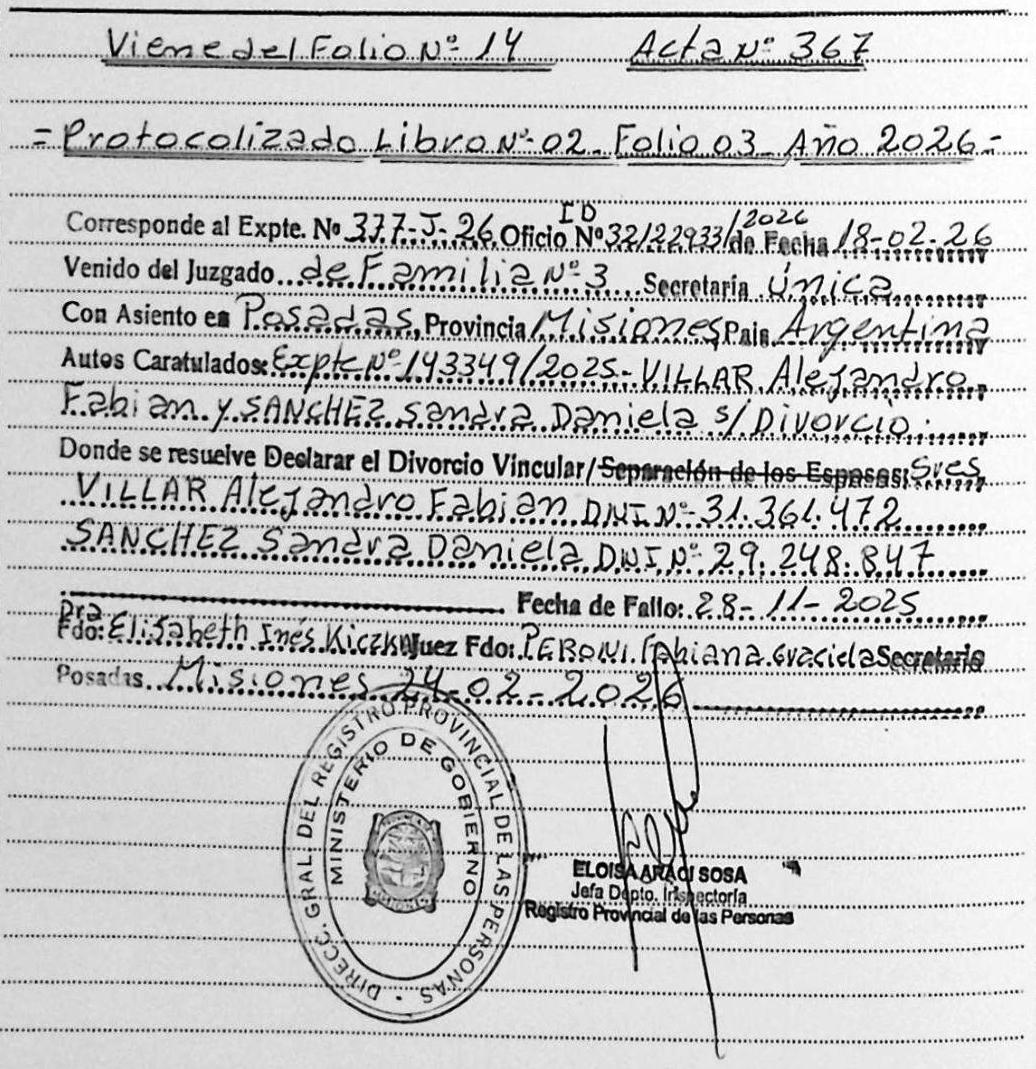 Viene del Folio Nº 14 Acta Nº 367
= Protocolizado Libro Nº 02 - Folio 03 - Año 2026 =
Corresponde al Expte. Nº 377-J-26 Oficio Nº ID 32122933/2026 de Fecha 18-02-26
Venido del Juzgado de Familia Nº 3 Secretaria Única
Con Asiento en Posadas, Provincia Misiones Pais Argentina
Autos Caratulados: Expte Nº 143349/2025 - VILLAR Alejandro
Fabian y SANCHEZ Sandra Daniela s/ Divorcio.
Donde se resuelve Declarar el Divorcio Vincular/Separación de los Esposos: Sres
VILLAR Alejandro Fabian DNI Nº 31.361.472
SANCHEZ Sandra Daniela DNI Nº 29.248.847
Fecha de Fallo: 28-11-2025
Fdo: Dra Elisabeth Inés Kiczka Juez Fdo: PERONI Fabiana Graciela Secretaria
Posadas, Misiones 24-02-2026
DIRECC. GRAL. DEL REGISTRO PROVINCIAL DE LAS PERSONAS
MINISTERIO DE GOBIERNO
ELOISA ARACI SOSA
Jefa Dpto. Inspectoría
Registro Provincial de las Personas